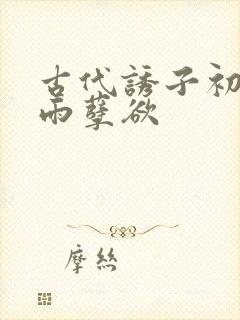 古代誘子初
雨孽欲
摩絲